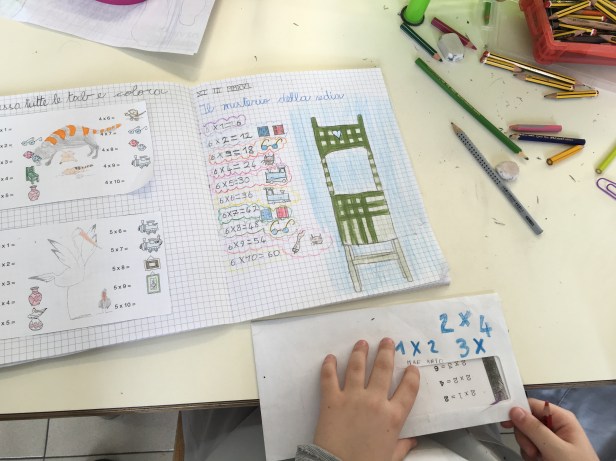 tutte le tab e colora
x 1 =
x 2 =
x 3 =
x 4 =
4 x 6 =
4 x 7 =
4 x 8 =
4 x 9 =
4 x 10 =
x 1 =
x 2 =
x 3 =
x 4 =
x 5 =
5 x 6 =
5 x 7 =
5 x 8 =
5 x 9 =
5 x 10 =
Il mistero della sedia
6x1=6
6x2=12
6x3=18
6x4=24
6x5=30
6x6=36
6x7=42
6x8=48
6x9=54
6x10=60
2 x 4
1 x 2 3 x
2 x 1 = 2
2 x 2 = 4
2 x 3 = 6